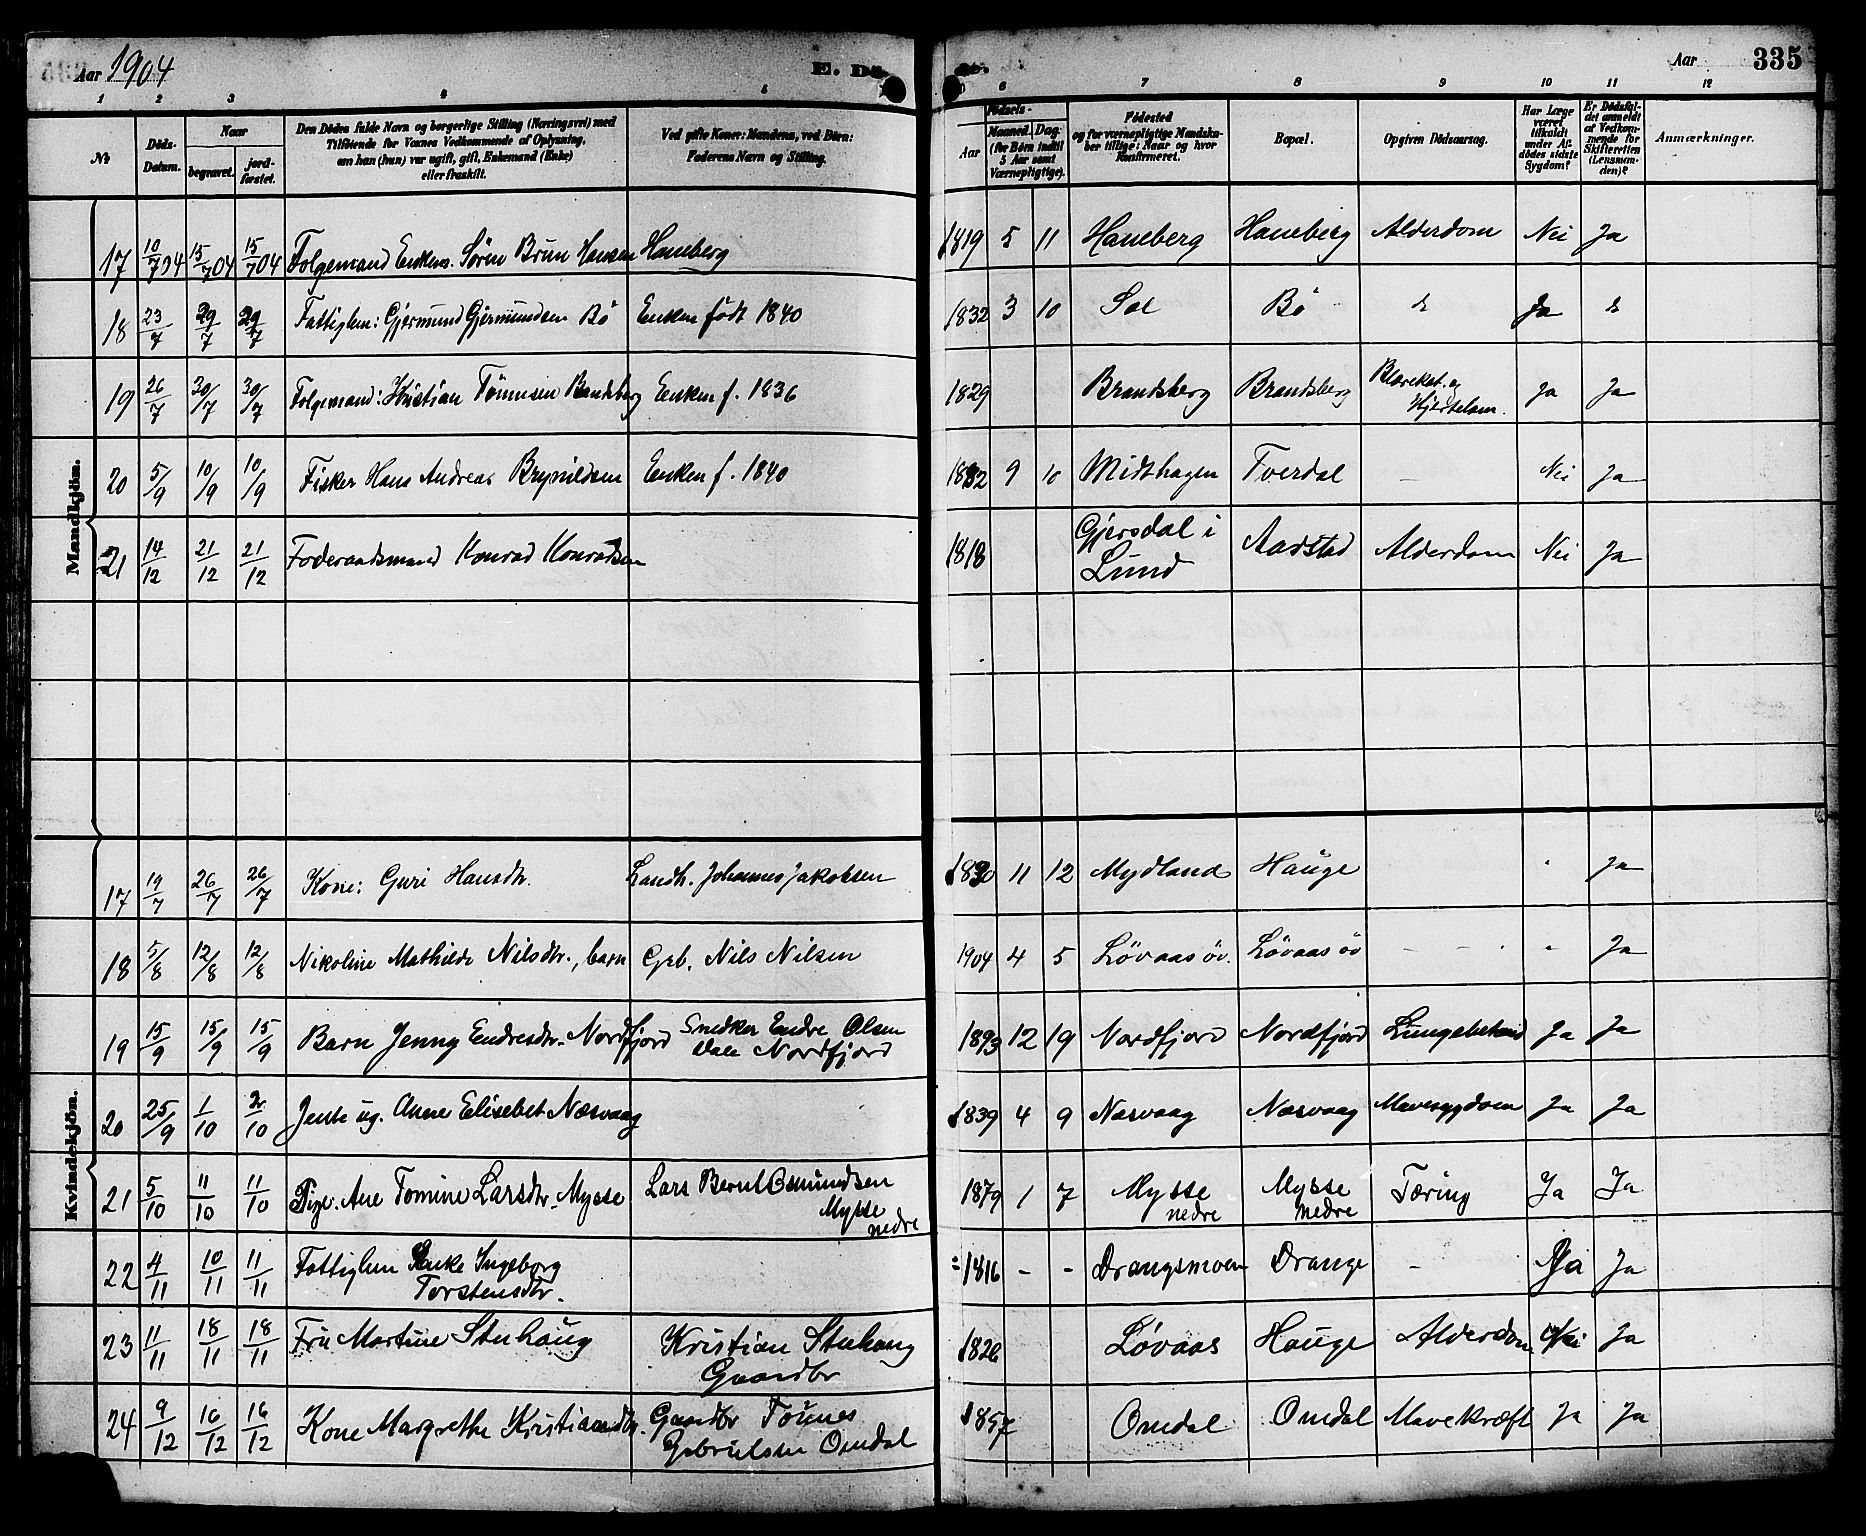 Aar 1904
E. Dö
de.
Aar
335
1 2 3 4 5 6 7 8 9 10 11 12
No
Döds-Datum.
Naar
begravet.
jord-fæstet.
Den Dödes fulde Navn og borgerlige Stilling (Næringsvei) med
Tilföiende for Voxnes Vedkommende af Oplysning,
om han (hun) var ugift, gift, Enkemand (Enke)
eller fraskilt.
Ved gifte Koner: Mandens, ved Börn:
Faderens Navn og Stilling.
Födsels-
Aar
Maaned. Dag.
(for Börn indtil
5 Aar samt
Værnepligtige).
Födested
og for værnepligtige Mandska-
ber tillige: Naar og hvor
Konfirmeret.
Bopæl.
Opgiven Dödsaarsag.
Har Læge
været
tilkaldt
under Af-
dödes sidste
Sygdom?
Er Dödsfal-
det anmeldt
af Vedkom-
mende for
Skifteretten
(Lensman-
den)?
Anmærkninger.
Mandkjön.
17 10/7 04 15/7 04 15/7 04 Folgemand Enkem. Sørin Brun Hansen Haneberg 1819 5 11 Haneberg Haneberg Alderdom Nei Ja
18 23/7 29/7 29/7 Fattiglem: Gjermund Gjermundsen Bö Enken født 1840 1832 3 10 Bö Ja
19 26/7 30/7 30/7 Folgemand: Kristian Tönnesen Brandsberg Enken f. 1836 1829 Brandsberg Brandsberg Blærekat. og
Hjertelam. Ja Ja
20 5/9 10/9 10/9 Fisker Hans Andreas Brynildsen Enken f. 1840 1832 9 10 Midthagen Tverdal – Nei Ja
21 14/12 21/12 21/12 Foderaadsmand Konrad Konradsen 1818 Gjersdal i
Lund Aarstad Alderdom Nei Ja
Kvindekjön.
17 19/7 26/7 26/7 Kone: Guri Hansdtr. Landh. Johannes Jakobsen 1830 11 12 Mydland Hauge Ja
18 5/8 12/8 12/8 Nikoline Mathilde Nilsdtr., barn Grb. Nils Nilsen 1904 4 5 Løvaas öv. Løvaas öv – – Ja
19 15/9 15/9 15/9 Barn Jenny Endresdtr. Nordfjord Snedker Endre Olsen
Dale Nordfjord 1893 12 19 Nordfjord Nordfjord Lungebetænd Ja Ja
20 25/9 1/10 2/10 Jente ug. Anne Elisebet Næsvaag 1839 4 9 Næsvaag Næsvaag Mavesygdom Ja Ja
21 5/10 11/10 11/10 Pige. Ane Tomine Larsdtr. Mysse Lars Bernt Osmundsen
Mysse
nedre 1879 1 7 Mysse
nedre Mysse
nedre Tæring Ja Ja
22 4/11 10/11 11/11 Fattiglem Enke Ingeborg
Torstensdtr. 1816 – – Drangsmoen Drange – Ja Ja
23 11/11 18/11 18/11 Fru Martine Stenhaug Kristian Stenhaug
Gaardbr 1826 Løvaas Hauge Alderdom Nei Ja
24 9/12 16/12 16/12 Kone Margrethe Kristiansdtr. Gaardbr Tönnes
Gabrielsen Omdal 1857 Omdal Omdal Mavekræft Ja Ja